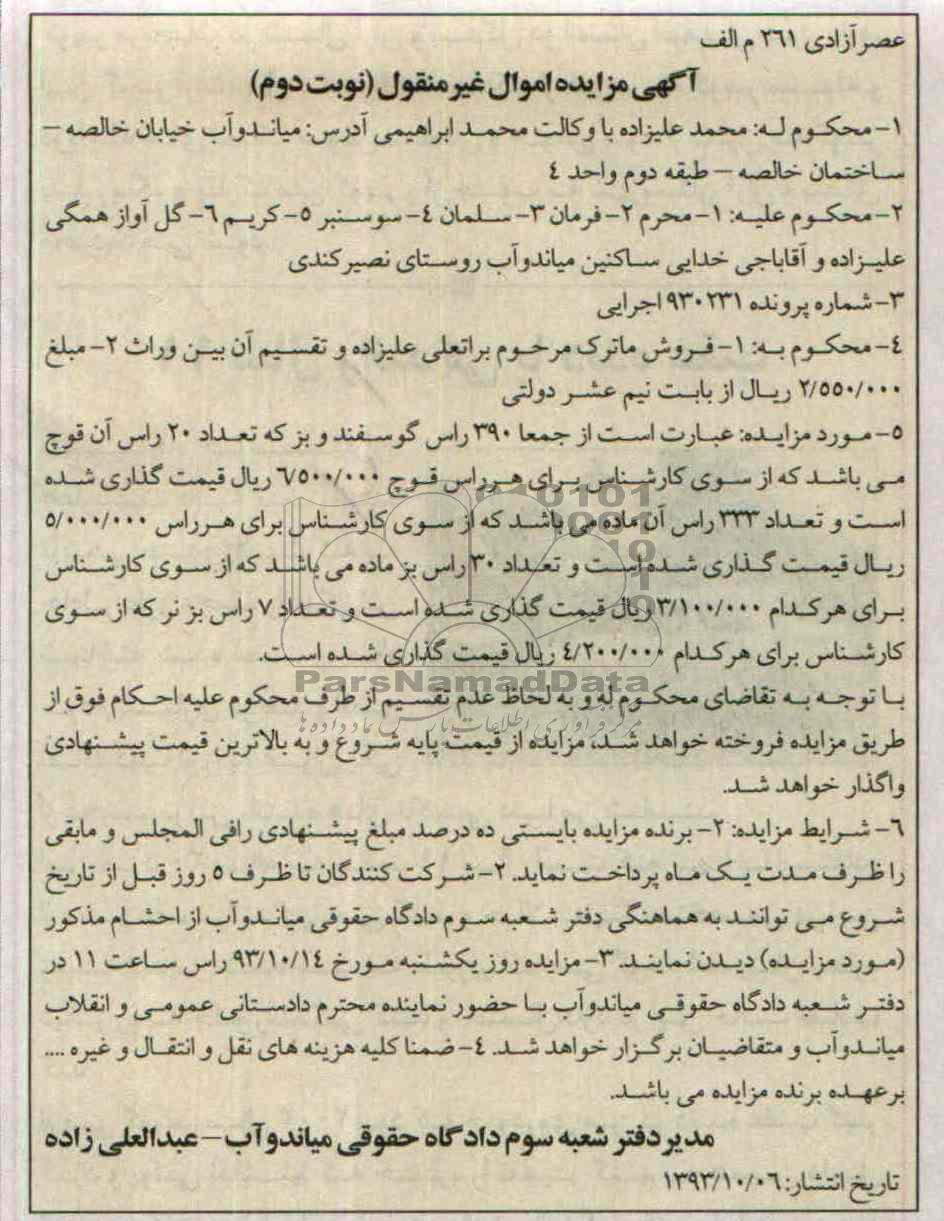 عصر آزادی ۲۶۱ م الف
آگهی مزایده اموال غیر منقول (نوبت دوم)
۱- محکوم له: محمد علیزاده با وکالت محمد ابراهیمی آدرس: میاندوآب خیابان خالصه –
ساختمان خالصه – طبقه دوم واحد ٤
۲- محکوم علیه: ۱- محرم ۲- فرمان ۳- سلمان ٤- سوسنبر ٥- کریم ٦- گل آواز همگی
علیزاده و آقاباجی خدایی ساکنین میاندوآب روستای نصیرکندی
۳- شماره پرونده ۹۳۰۲۳۱ اجرایی
٤- محکوم به: ۱- فروش ماترک مرحوم براتعلی علیزاده و تقسیم آن بین وراث ۲- مبلغ
۲/٥٥۰/۰۰۰ ریال از بابت نیم عشر دولتی
٥- مورد مزایده: عبارت است از جمعا ۳۹۰ راس گوسفند و بز که تعداد ۲۰ راس آن قوچ
می باشد که از سوی کارشناس برای هرراس قوچ ٦/٥۰۰/۰۰۰ ریال قیمت گذاری شده
است و تعداد ۳۳۳ راس آن ماده می باشد که از سوی کارشناس برای هرراس ٥/۰۰۰/۰۰۰
ریال قیمت گذاری شده است و تعداد ۳۰ راس بز ماده می باشد که از سوی کارشناس
برای هرکدام ۳/۱۰۰/۰۰۰ ریال قیمت گذاری شده است و تعداد ۷ راس بز نر که از سوی
کارشناس برای هرکدام ٤/۲۰۰/۰۰۰ ریال قیمت گذاری شده است.
ParsNamadData
با توجه به تقاضای محکوم له و به لحاظ عدم تقسیم از طرف محکوم علیه احکام فوق از
طریق مزایده فروخته خواهد شد، مزایده از قیمت پایه شروع و به بالاترین قیمت پیشنهادی
واگذار خواهد شد.
٦- شرایط مزایده: ۲- برنده مزایده بایستی ده درصد مبلغ پیشنهادی رافی المجلس و مابقی
را ظرف مدت یک ماه پرداخت نماید. ۲- شرکت کنندگان تا ظرف ٥ روز قبل از تاریخ
شروع می توانند به هماهنگی دفتر شعبه سوم دادگاه حقوقی میاندوآب از احشام مذکور
(مورد مزایده) دیدن نمایند. ۳- مزایده روز یکشنبه مورخ ۹۳/۱۰/۱٤ راس ساعت ۱۱ در
دفتر شعبه دادگاه حقوقی میاندوآب با حضور نماینده محترم دادستانی عمومی و انقلاب
میاندوآب و متقاضیان برگزار خواهد شد. ٤- ضمنا کلیه هزینه های نقل و انتقال و غیره ....
برعهده برنده مزایده می باشد.
مدیر دفتر شعبه سوم دادگاه حقوقی میاندوآب – عبدالعلی زاده
تاریخ انتشار: ۱۳۹۳/۱۰/۰٦